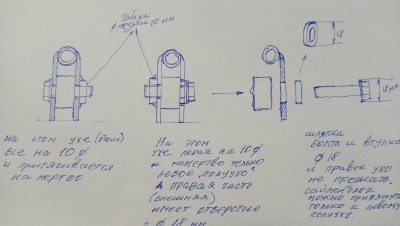 Гайка
резьбой 10 мм
18
18 мм
на этом ухе (окей)
все на 10 ф
и притягивается
на мертво
На этом
ухе левая на 10 ф
и намертво только
"левое полухо"
А правая часть
(внешняя)
имеет отверстие
ф 18 мм
шляпка
болта и втулка
ф 18
и правое ухо
не прожать.
сайленблок
можно притянуть
только к левому
полуху.